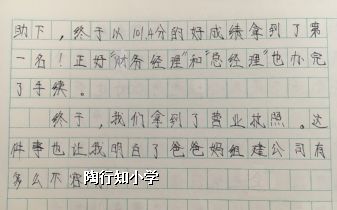 助下，终于以101.4分的好成绩拿到了第
一名！正好“财务经理”和“总经理”也办完
了手续。
终于，我们拿到了营业执照。这
件事也让我明白了爸爸妈组建公司有
多么不容
陶行知小学